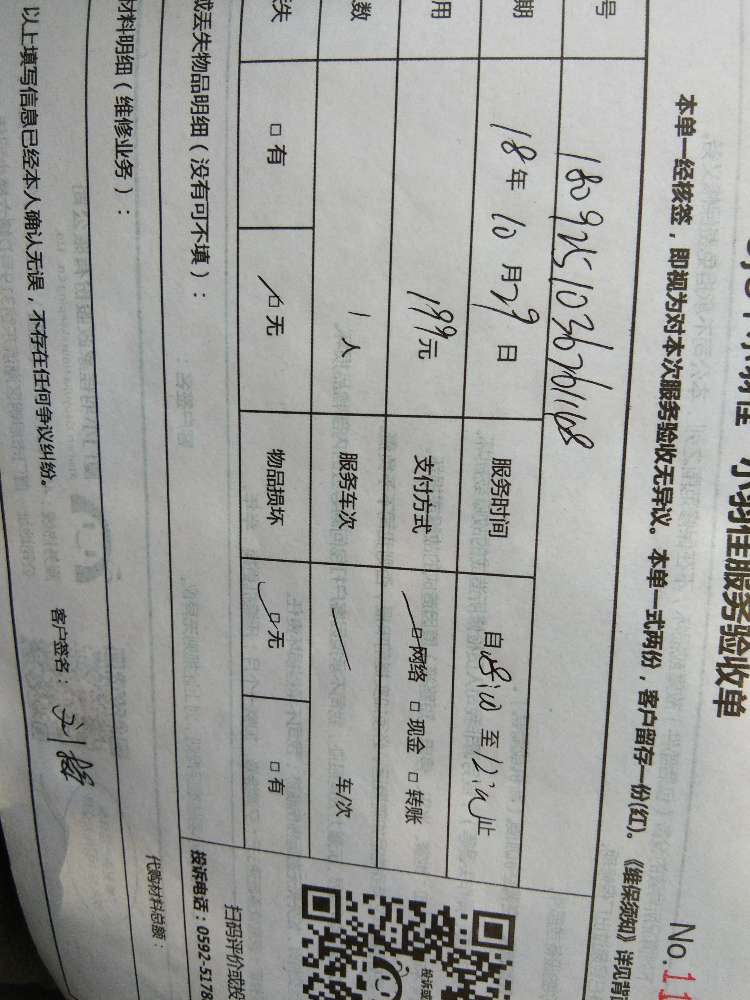 小羽佳服务验收单
No.11
本单一经核签，即视为对本次服务验收无异议。本单一式两份，客户留存一份(红)。《维保须知》详见背
号
期 18年10月29日 服务时间 自8:00至12:00止
用 199元 支付方式 □网络 □现金 □转账
数 1人 服务车次 车/次
失 □有 □无 物品损坏 □无 □有
或丢失物品明细（没有可不填）：
扫码评价或投
投诉电话：0592-5178
材料明细（维修业务）：
代购材料总额：
以上填写信息已经本人确认无误，不存在任何争议纠纷。
客户签名：